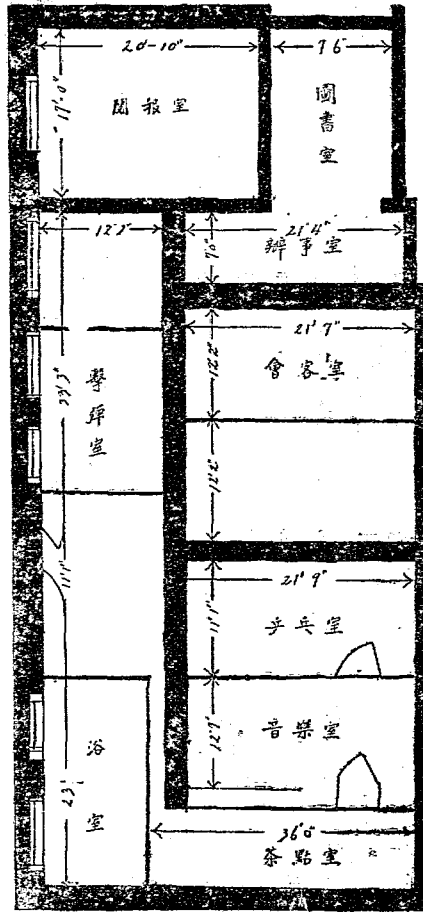 20'-10"
7'6
17'-0"
閱报室
圖書室
12'2"
21'4"
7'0"
辦事室
21'7"
12'2"
會客室
33'3"
擊彈室
12'2"
11'1"
21'9"
11'1"
乒乓室
12'7"
音樂室
浴室
23'
36'0"
茶點室